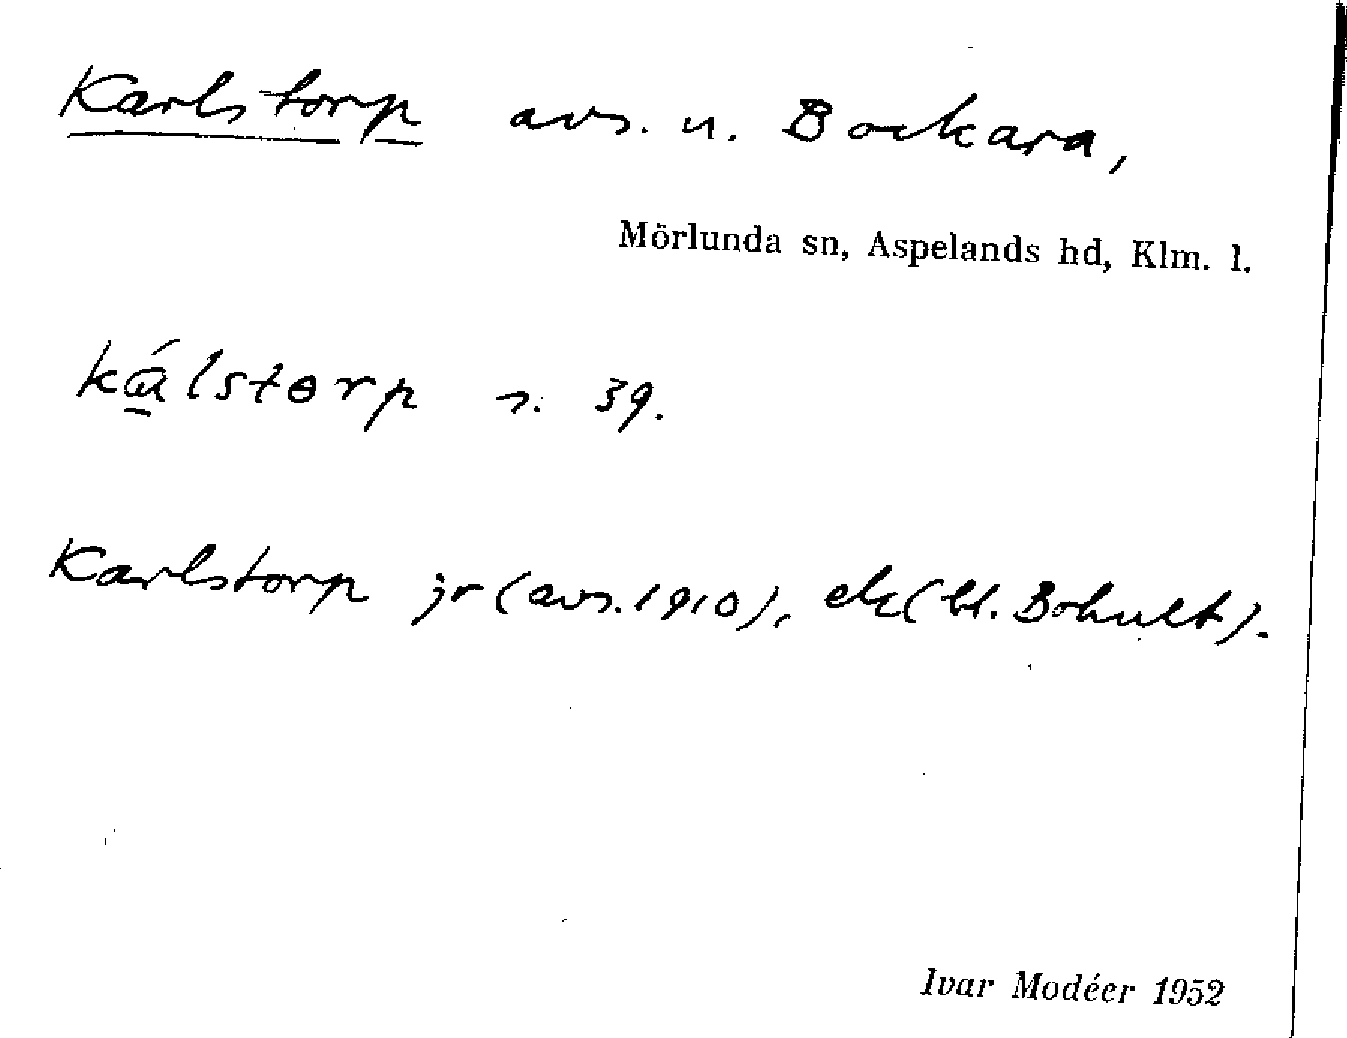 Karlstorp avs. u. Bockara,
Mörlunda sn, Aspelands hd, Klm. l.
kálstorp s. 39.
Karlstorp jr (avs. 1910), ek (bl. Bohult).
Ivar Modéer 1952